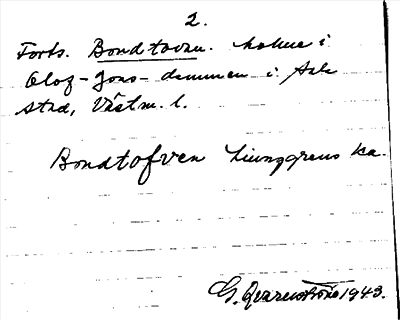 2.
Forts. Bondtovan. holme i
Olof-Jons-dammen i Asle
strö, Västm. l.
Bondtofven Ljunggrens ka.
G. Qvarnström 1943.